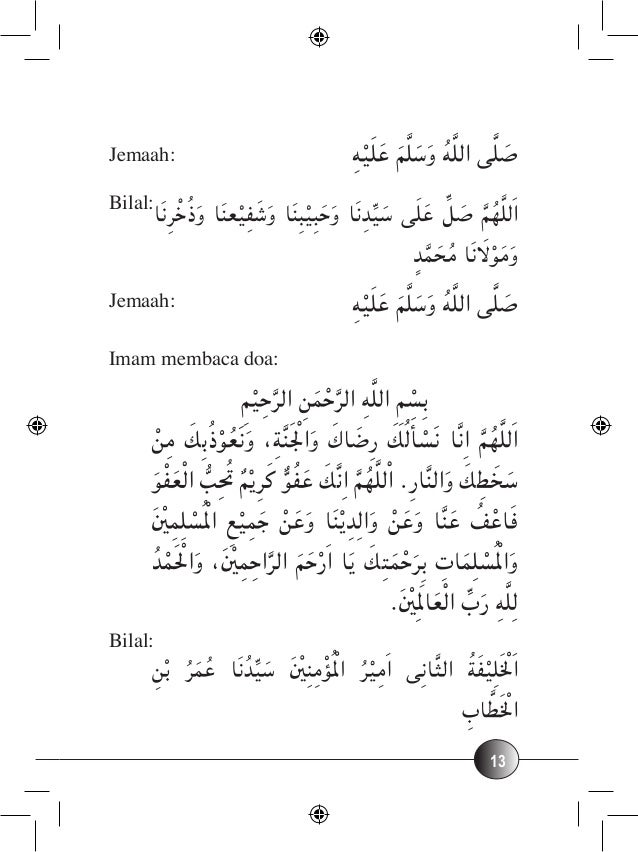 Jemaah: صَلَّى اللَّهُ وَسَلَّمَ عَلَيْهِ
Bilal: اَللَّهُمَّ صَلِّ عَلَى سَيِّدِنَا وَحَبِيْبِنَا وَشَفِيْعِنَا وَذُخْرِنَا
وَمَوْلَانَا مُحَمَّدٍ
Jemaah: صَلَّى اللَّهُ وَسَلَّمَ عَلَيْهِ
Imam membaca doa:
بِسْمِ اللَّهِ الرَّحْمَنِ الرَّحِيْمِ
اَللَّهُمَّ اِنَّا نَسْأَلُكَ رِضَاكَ وَالْجَنَّةِ، وَنَعُوْذُبِكَ مِنْ
سَخَطِكَ وَالنَّارِ. اْللَّهُمَّ اِنَّكَ عَفُوٌّ كَرِيْمٌ تُحِبُّ الْعَفْوَ
فَاعْفُ عَنَّا وَعَنْ وَالِدِيْنَا وَعَنْ جَمِيْعِ الْمُسْلِمِيْنَ
وَالْمُسْلِمَاتِ بِرَحْمَتِكَ يَا اَرْحَمَ الرَّاحِمِيْنَ، وَالْحَمْدُ
لِلَّهِ رَبِّ الْعَالَمِيْنَ.
Bilal:
اَلْخَلِيْفَةُ الثَّانِى اَمِيْرُ الْمُؤْمِنِيْنَ سَيِّدُنَا عُمَرُ بْنِ
الْخَطَّابِ
13